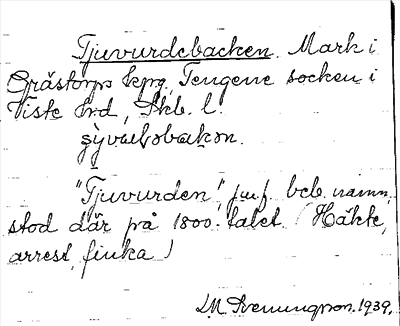 Tjuvurdebacken. Mark i
Grästorps kpg, Tengene socken i
Viste hrd, Skb. l.
"Tjuvurden", jmf. bet. namn,
stod där på 1800-talet. (Häkte,
arrest, finka)
LM Svenungsson. 1939.